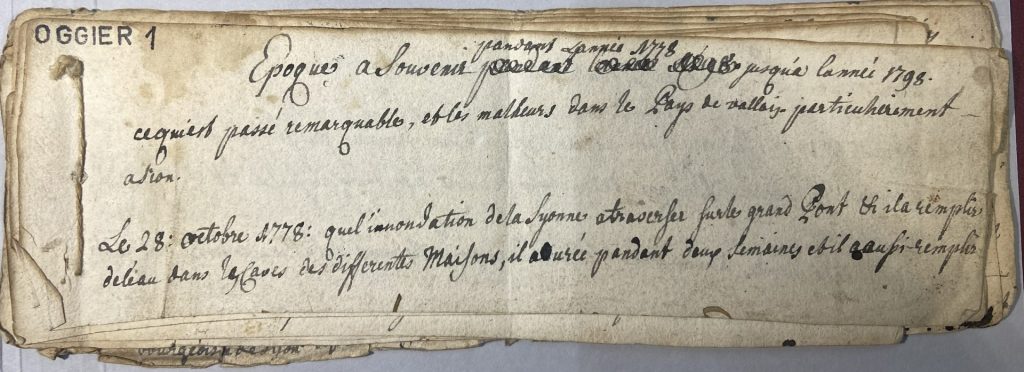 OGGIER 1
pandant Lannée 1778
Epoque a Souvenir jusqu'a lannée 1798.
cequiest passé remarquable, et les malheurs dans le Pays de vallais particulierement
asion.
Le 28: octobre 1778: quel'innondation dela Syonne atraverser surle grand Pont & il a remplir
deléau dans les Caves des differentes Maisons, il adurée pandant deux semaines etil aaussi remplir